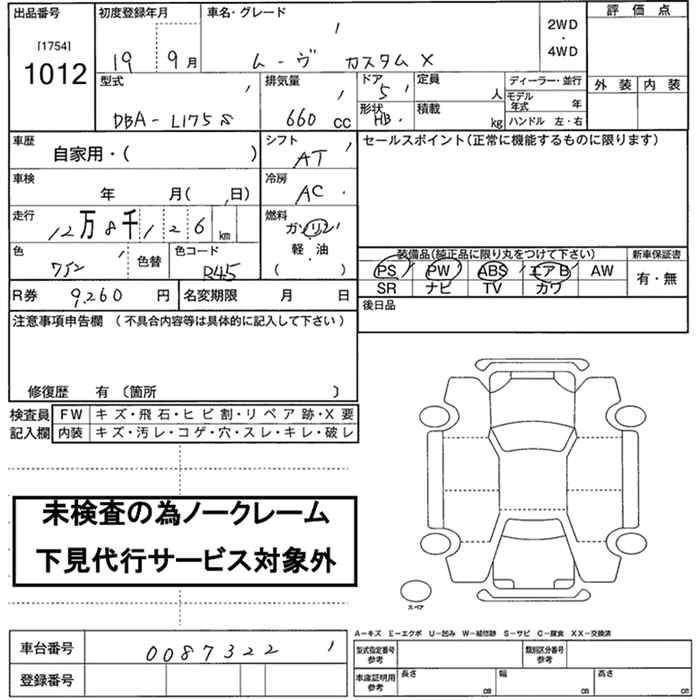 出品番号 初度登録年月 車名・グレード 評価点
[1754] 1012
19 9月 ムーヴ カスタムX 2WD・4WD
型式 排気量 ドア 定員 ディーラー・並行 外装 内装
DBA-L175S 660cc 5 人 モデル年式 年
形状 HB. 積載 kg ハンドル 左・右
車歴 自家用・( ) シフト AT セールスポイント(正常に機能するものに限ります)
車検 年 月( 日) 冷房 AC
走行 12万8千126km 燃料 ガソリン 軽・油 ( )
色 ワイン 色替 色コード R45
装備品(純正品に限り丸をつけて下さい) 新車保証書
PS PW ABS エアB AW 有・無
SR ナビ TV カワ
R券 9,260円 名変期限 月 日 後日品
注意事項申告欄 (不具合内容等は具体的に記入して下さい)
修復歴 有 〔箇所 〕
検査員 FW キズ・飛石・ヒビ割・リペア跡・X要
記入欄 内装 キズ・汚レ・コゲ・穴・スレ・キレ・破レ
未検査の為ノークレーム
下見代行サービス対象外
スペア
A-キズ E-エクボ U-凹み W-補修跡 S-サビ C-腐食 XX-交換済
車台番号 0087322 型式指定番号 参考 類別区分番号 参考
登録番号 車庫証明用 参考 長さ cm 幅 cm 高さ cm